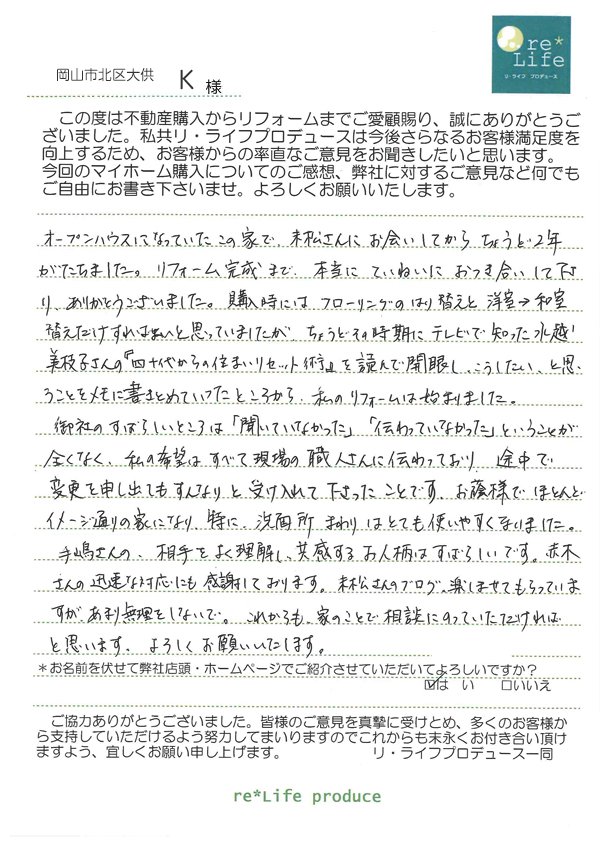 re*
Life
リ・ライフ プロデュース
岡山市北区大供 K 様
この度は不動産購入からリフォームまでご愛顧賜り、誠にありがとうご
ざいました。私共リ・ライフプロデュースは今後さらなるお客様満足度を
向上するため、お客様からの率直なご意見をお聞きしたいと思います。
今回のマイホーム購入についてのご感想、弊社に対するご意見など何でも
ご自由にお書き下さいませ。よろしくお願いいたします。
オープンハウスになっていたこの家で、末松さんにお会いしてから ちょうど2年
がたちました。リフォーム完成まで、本当に ていねいに おつき合いして下さ
り、ありがとうございました。購入時には フローリングのはり替えと 洋室→和室
替えだけすれば良いと思っていましたが、ちょうどその時期に テレビで知った水越
美枝子さんの『四十代からの住まいリセット術』を読んで開眼し、こうしたい、と思
うことをメモに書きとめていったところから、私のリフォームは始まりました。
御社のすばらしいところは「聞いていなかった」「伝わっていなかった」ということが
全くなく、私の希望は すべて現場の職人さんに伝わっており、途中で
変更を申し出ても すんなりと 受け入れて下さったことです。お蔭様で ほとんど
イメージ通りの家になり、特に、洗面所 まわりはとても使いやすくなりました。
手嶋さんの、相手をよく理解し、共感するお人柄はすばらしいです。赤木
さんの迅速な対応にも感謝しております。末松さんのブログ、楽しませてもらっていま
すが、あまり無理をしないで。これからも、家のことで相談にのっていただければ
と思います。よろしくお願いいたします。
*お名前を伏せて弊社店頭・ホームページでご紹介させていただいてよろしいですか？
☑はい □いいえ
ご協力ありがとうございました。皆様のご意見を真摯に受けとめ、多くのお客様か
ら支持していただけるよう努力してまいりますのでこれからも末永くお付き合い頂け
ますよう、宜しくお願い申し上げます。 リ・ライフプロデュース一同
re*Life produce